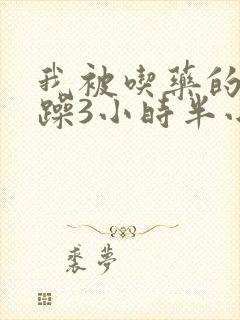 我被喫藥的
躁3小時半小
裘夢